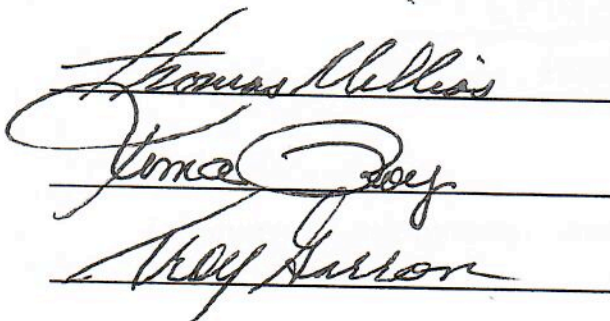 Thomas Millias
Kima Roy
Troy Garron